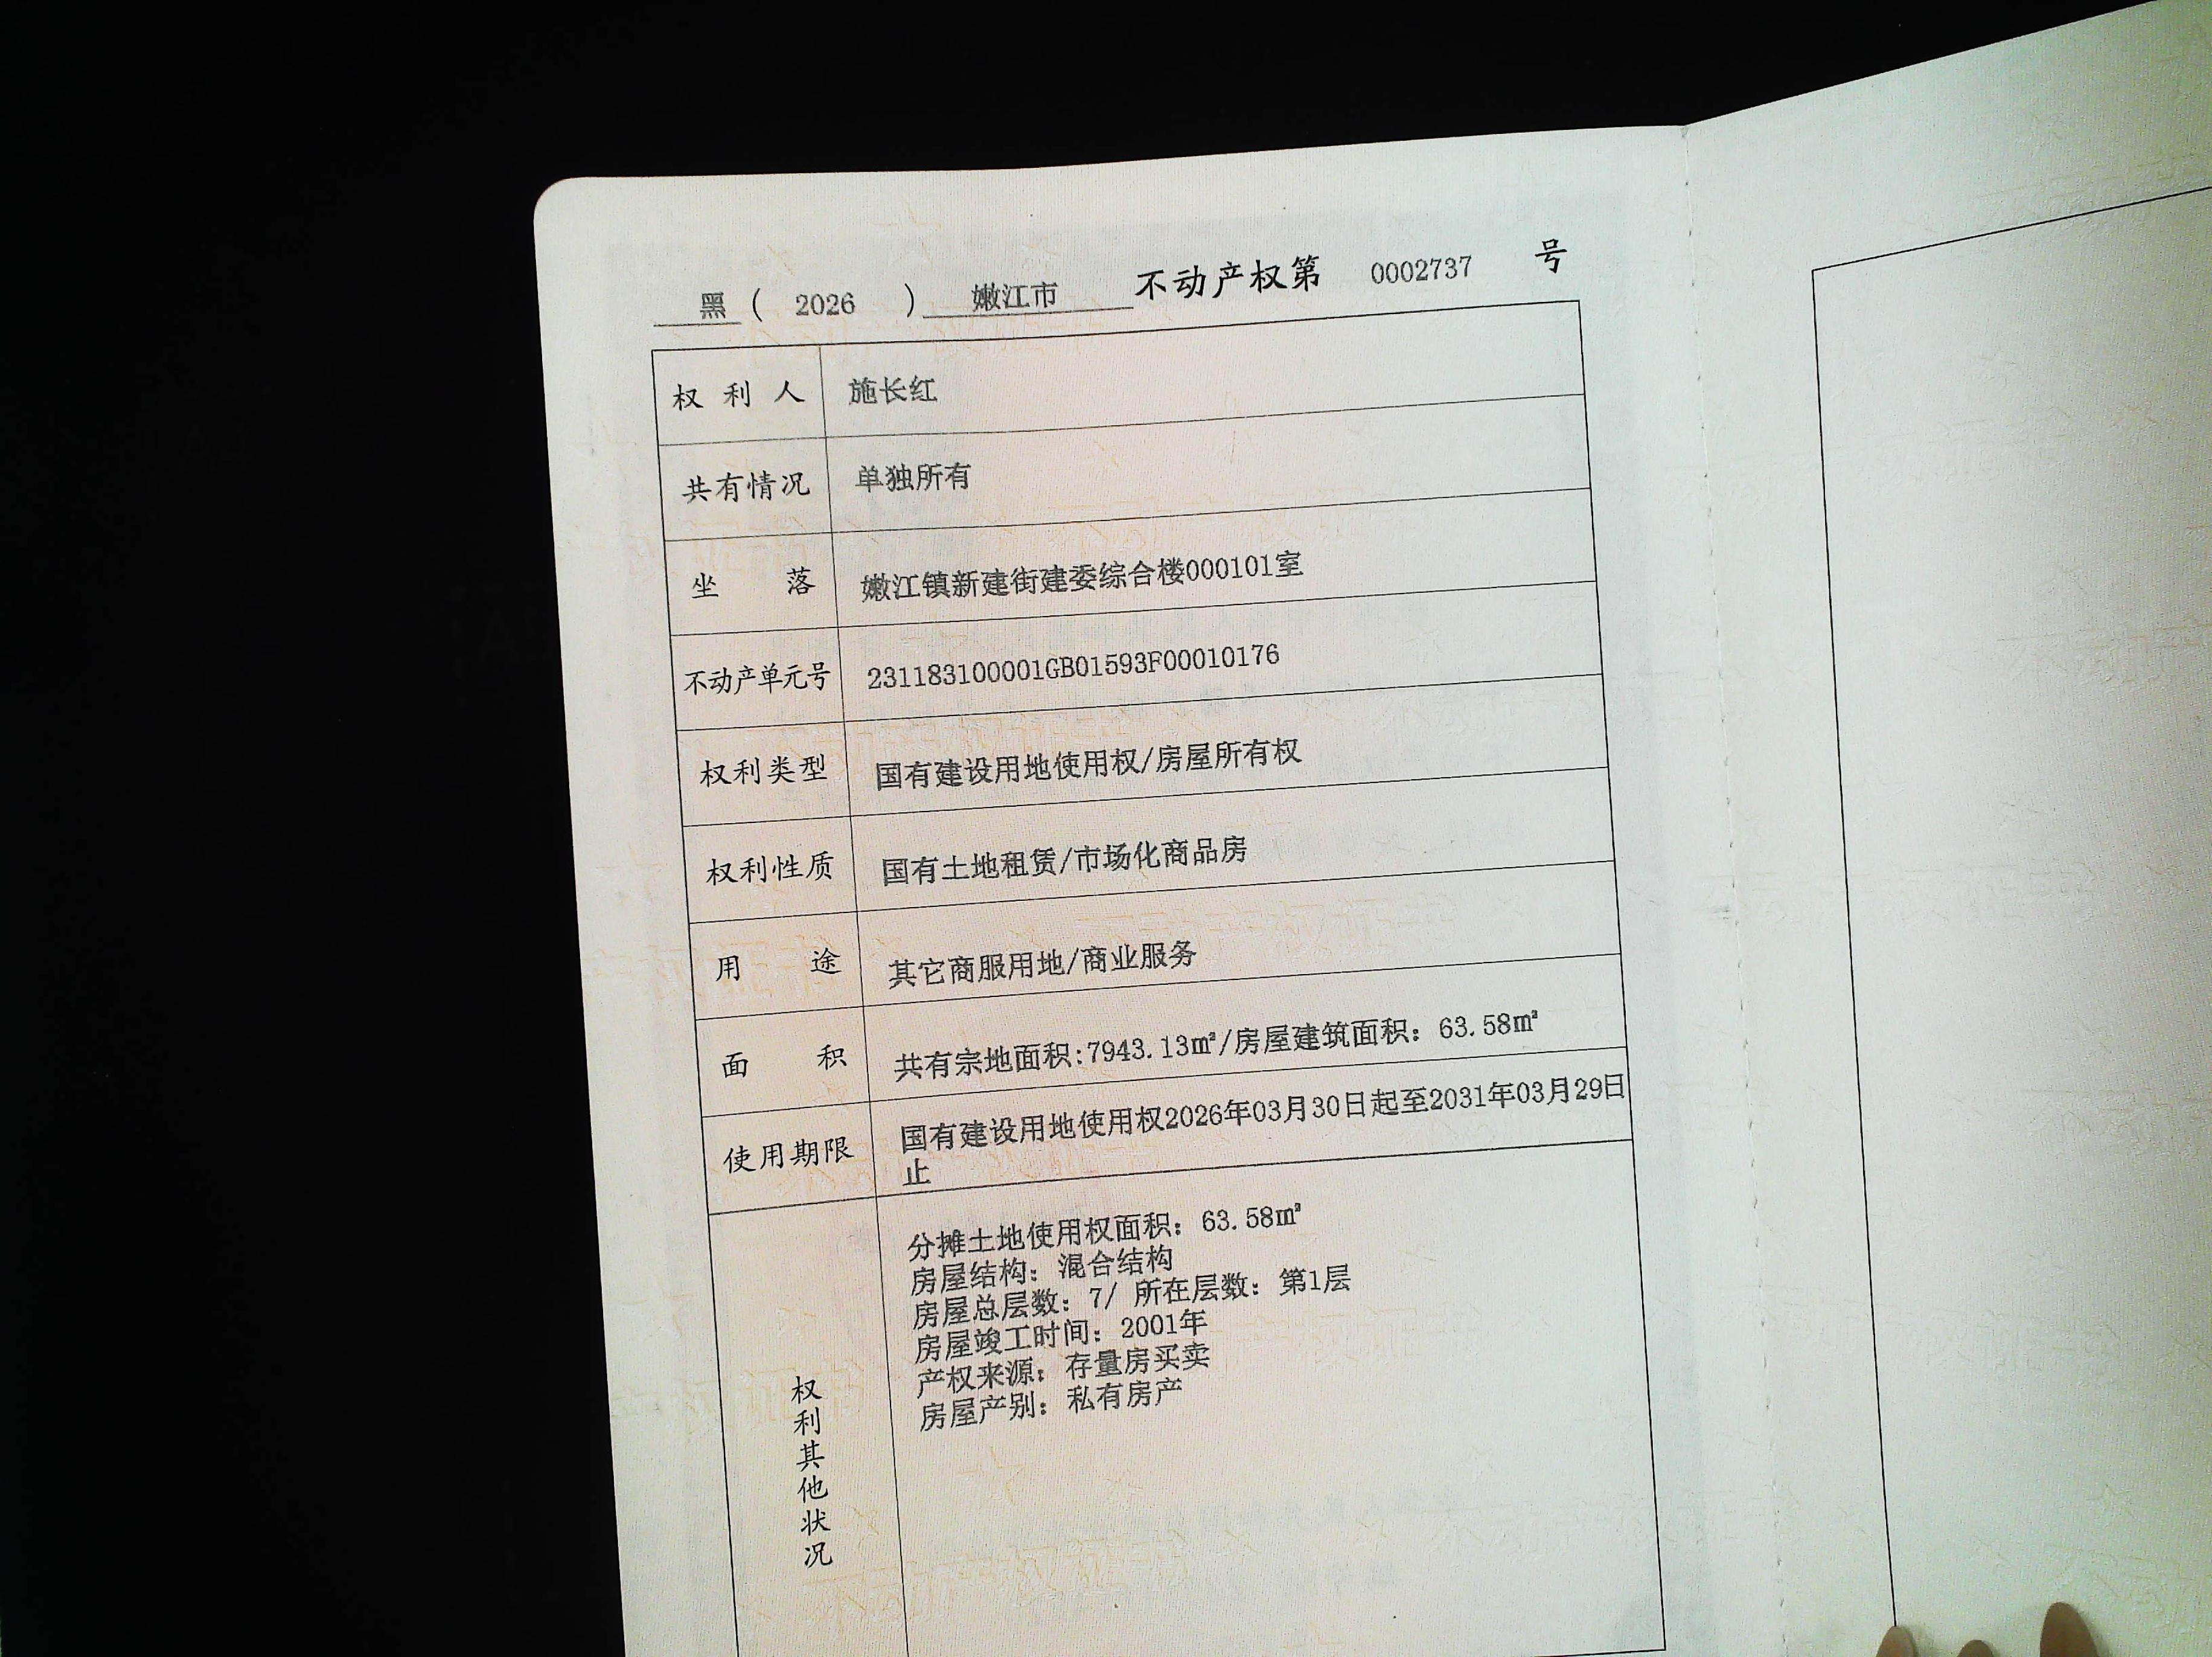 黑 ( 2026 ) 嫩江市 不动产权第 0002737 号
权利人 施长红
共有情况 单独所有
坐落 嫩江镇新建街建委综合楼000101室
不动产单元号 231183100001GB01593F00010176
权利类型 国有建设用地使用权/房屋所有权
权利性质 国有土地租赁/市场化商品房
用途 其它商服用地/商业服务
面积 共有宗地面积:7943.13㎡/房屋建筑面积: 63.58㎡
使用期限 国有建设用地使用权2026年03月30日起至2031年03月29日
止
权利其他状况
分摊土地使用权面积: 63.58㎡
房屋结构: 混合结构
房屋总层数: 7/ 所在层数: 第1层
房屋竣工时间: 2001年
产权来源: 存量房买卖
房屋产别: 私有房产